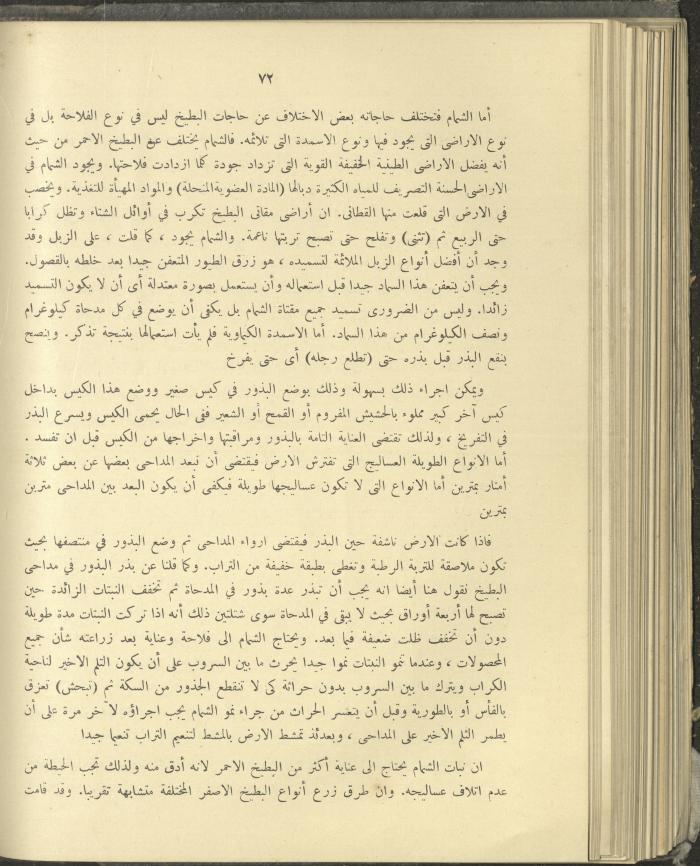 ٧٢
أما الشمام فتختلف حاجاته بعض الاختلاف عن حاجات البطيخ ليس في نوع الفلاحة بل في
نوع الاراضى التى يجود فيها ونوع الاسمدة التى تلائمه. فالشمام يختلف عن البطيخ الاحمر من حيث
أنه يفضل الاراضى الطينية الخفيفة القوية التى تزداد جودة كما ازدادت فلاحتها. ويجود الشمام في
الاراضى الحسنة التصريف للمياه الكثيرة دبالها (المادة العضوية المنحلة) والمواد المهيأة للتغذية. ويخصب
في الارض التى قلعت منها القطانى. ان أراضى مقاثى البطيخ تكرب في أوائل الشتاء وتظل كرابا
حتى الربيع ثم (تثنى) وتفلح حتى تصبح تربتها ناعمة. والشمام يجود ، كما قلت ، على الزبل وقد
وجد أن أفضل أنواع الزبل الملائمة لتسميده ، هو زرق الطيور المتعفن جيدا بعد خلطه بالقصول.
ويجب أن يتعفن هذا السماد جيدا قبل استعماله وأن يستعمل بصورة معتدلة أى أن لا يكون التسميد
زائدا. وليس من الضرورى تسميد جميع مقتاة الشمام بل يكفى أن يوضع في كل مدحاة كيلوغرام
ونصف الكيلوغرام من هذا السماد. أما الاسمدة الكيماوية فلم يأت استعمالها بنتيجة تذكر. وينصح
بنفع البذر قبل بذره حتى (تطلع رجله) أى حتى يفرخ
ويمكن اجراء ذلك بسهولة وذلك بوضع البذور في كيس صغير ووضع هذا الكيس بداخل
كيس آخر كبير مملوء بالحشيش المفروم أو القمح أو الشعير ففى الحال يحمى الكيس ويسرع البذر
في التفريخ ، ولذلك تقتضى العناية التامة بالبذور ومراقبتها واخراجها من الكيس قبل ان تفسد .
أما الانواع الطويلة العساليج التى تفترش الارض فيقتضى أن تبعد المداحى بعضها عن بعض ثلاثة
أمتار بمترين أما الانواع التى لا تكون عساليجها طويلة فيكفى أن يكون البعد بين المداحى مترين
بمترين
فاذا كانت الارض ناشفة حين البذر فيقتضى ارواء المداحى ثم وضع البذور في منتصفها بحيث
تكون ملاصقة للتربة الرطبة وتغطى بطبقة خفيفة من التراب. وكما قلنا عن بذر البذور في مداحى
البطيخ نقول هنا أيضا انه يجب أن تبذر عدة بذور في المدحاة ثم تخفف النبتات الزائدة حين
تصبح لها أربعة أوراق بحيث لا يبقى في المدحاة سوى شتلتين ذلك أنه اذا تركت النبتات مدة طويلة
دون أن تخفف ظلت ضعيفة فيما بعد. ويحتاج الشمام الى فلاحة وعناية بعد زراعته شأن جميع
المحصولات ، وعندما تنمو النبتات نموا جيدا يحرث ما بين السروب على أن يكون التلم الاخير لناحية
الكراب ويترك ما بين السروب بدون حراثة كى لا تنقطع الجذور من السكة ثم (تبحش) تعزق
بالفأس أو بالطورية وقبل أن يتعسر الحراث من جراء نمو الشمام يجب اجراؤه لآخر مرة على أن
يطمر التلم الاخير على المداحى ، وبعدئذ تمشط الارض بالمشط لتنعيم التراب تنعيما جيدا
ان نبات الشمام يحتاج الى عناية أكثر من البطيخ الاحمر لانه أدق منه ولذلك تجب الحيطة من
عدم اتلاف عساليجه. وان طرق زرع أنواع البطيخ الاصفر المختلفة متشابهة تقريبا. وقد قامت